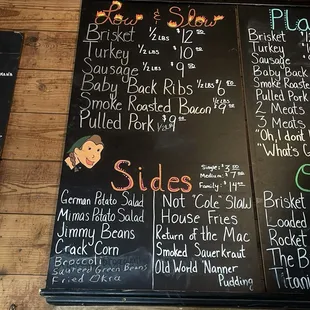 Low & Slow
Brisket 1/2 lbs $12
Turkey 1/2 lbs $10
Sausage 1/2 lbs $9
Baby Back Ribs 1/2 lbs $6
Smoke Roasted Bacon 1/2 lbs $9
Pulled Pork $9 1/2 lbs
Sides
Single: $3.50
Medium: $7.00
Family: $14.00
German Potato Salad
Mimas Potato Salad
Jimmy Beans
Crack Corn
Broccoli
Sauteed Green Beans
Fried Okra
Not "Cole" Slaw
House Fries
Return of the Mac
Smoked Sauerkraut
Old World Nanner
Pudding
Pla
Brisket
Turkey
Sausage
Baby Back
Smoke Roas
Pulled Pork
2 Meats
3 Meats
"Oh, I don't
"What's G
Brisket
Loaded
Rocket
The B
Titanic